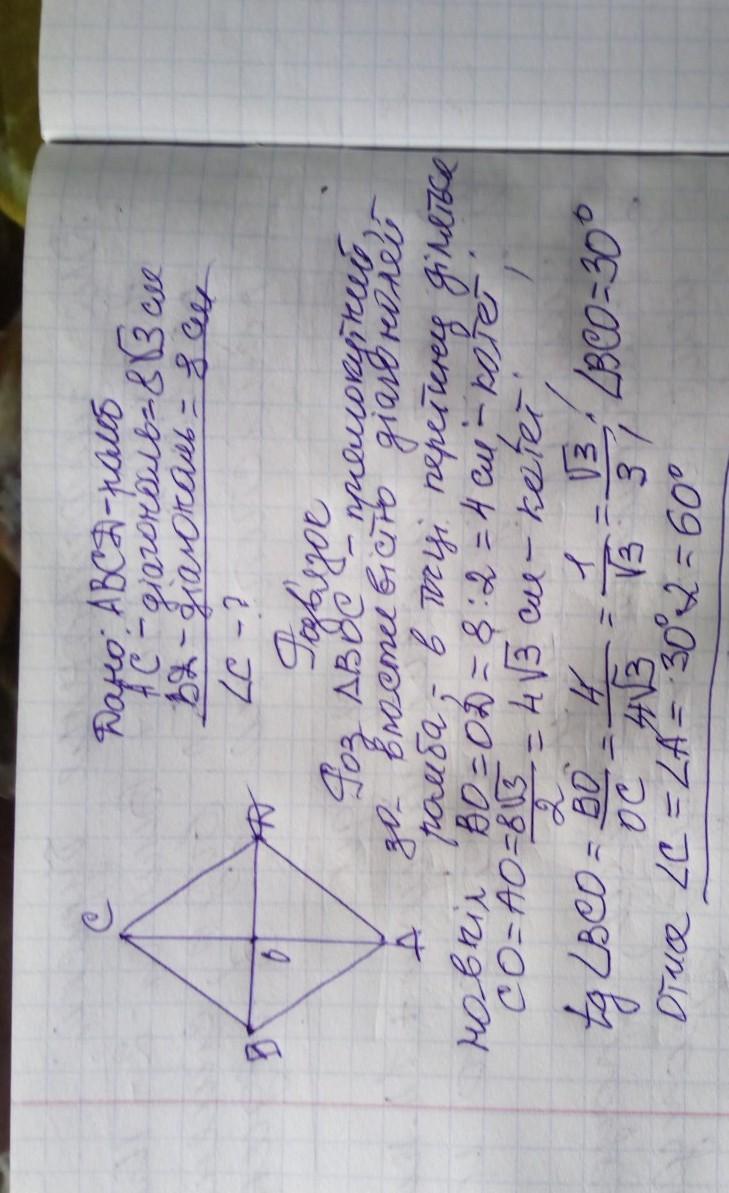 Дано: ABCD-ромб
AC - діагональ = 8√3 см
BD - діагональ = 8 см
∠C - ?
C
B
D
O
A
Розв'язок
Роз. △BOC - прямокутний
за властивістю діагоналей
ромба, в точці перетину діляться
навпіл BO = OD = 8 : 2 = 4 см - катет.
CO = AO = 8√3/2 = 4√3 см - катет,
tg ∠BCO = BO/OC = 4/4√3 = 1/√3 = √3/3, ∠BCO = 30°
Отже ∠C = ∠A = 30°·2 = 60°